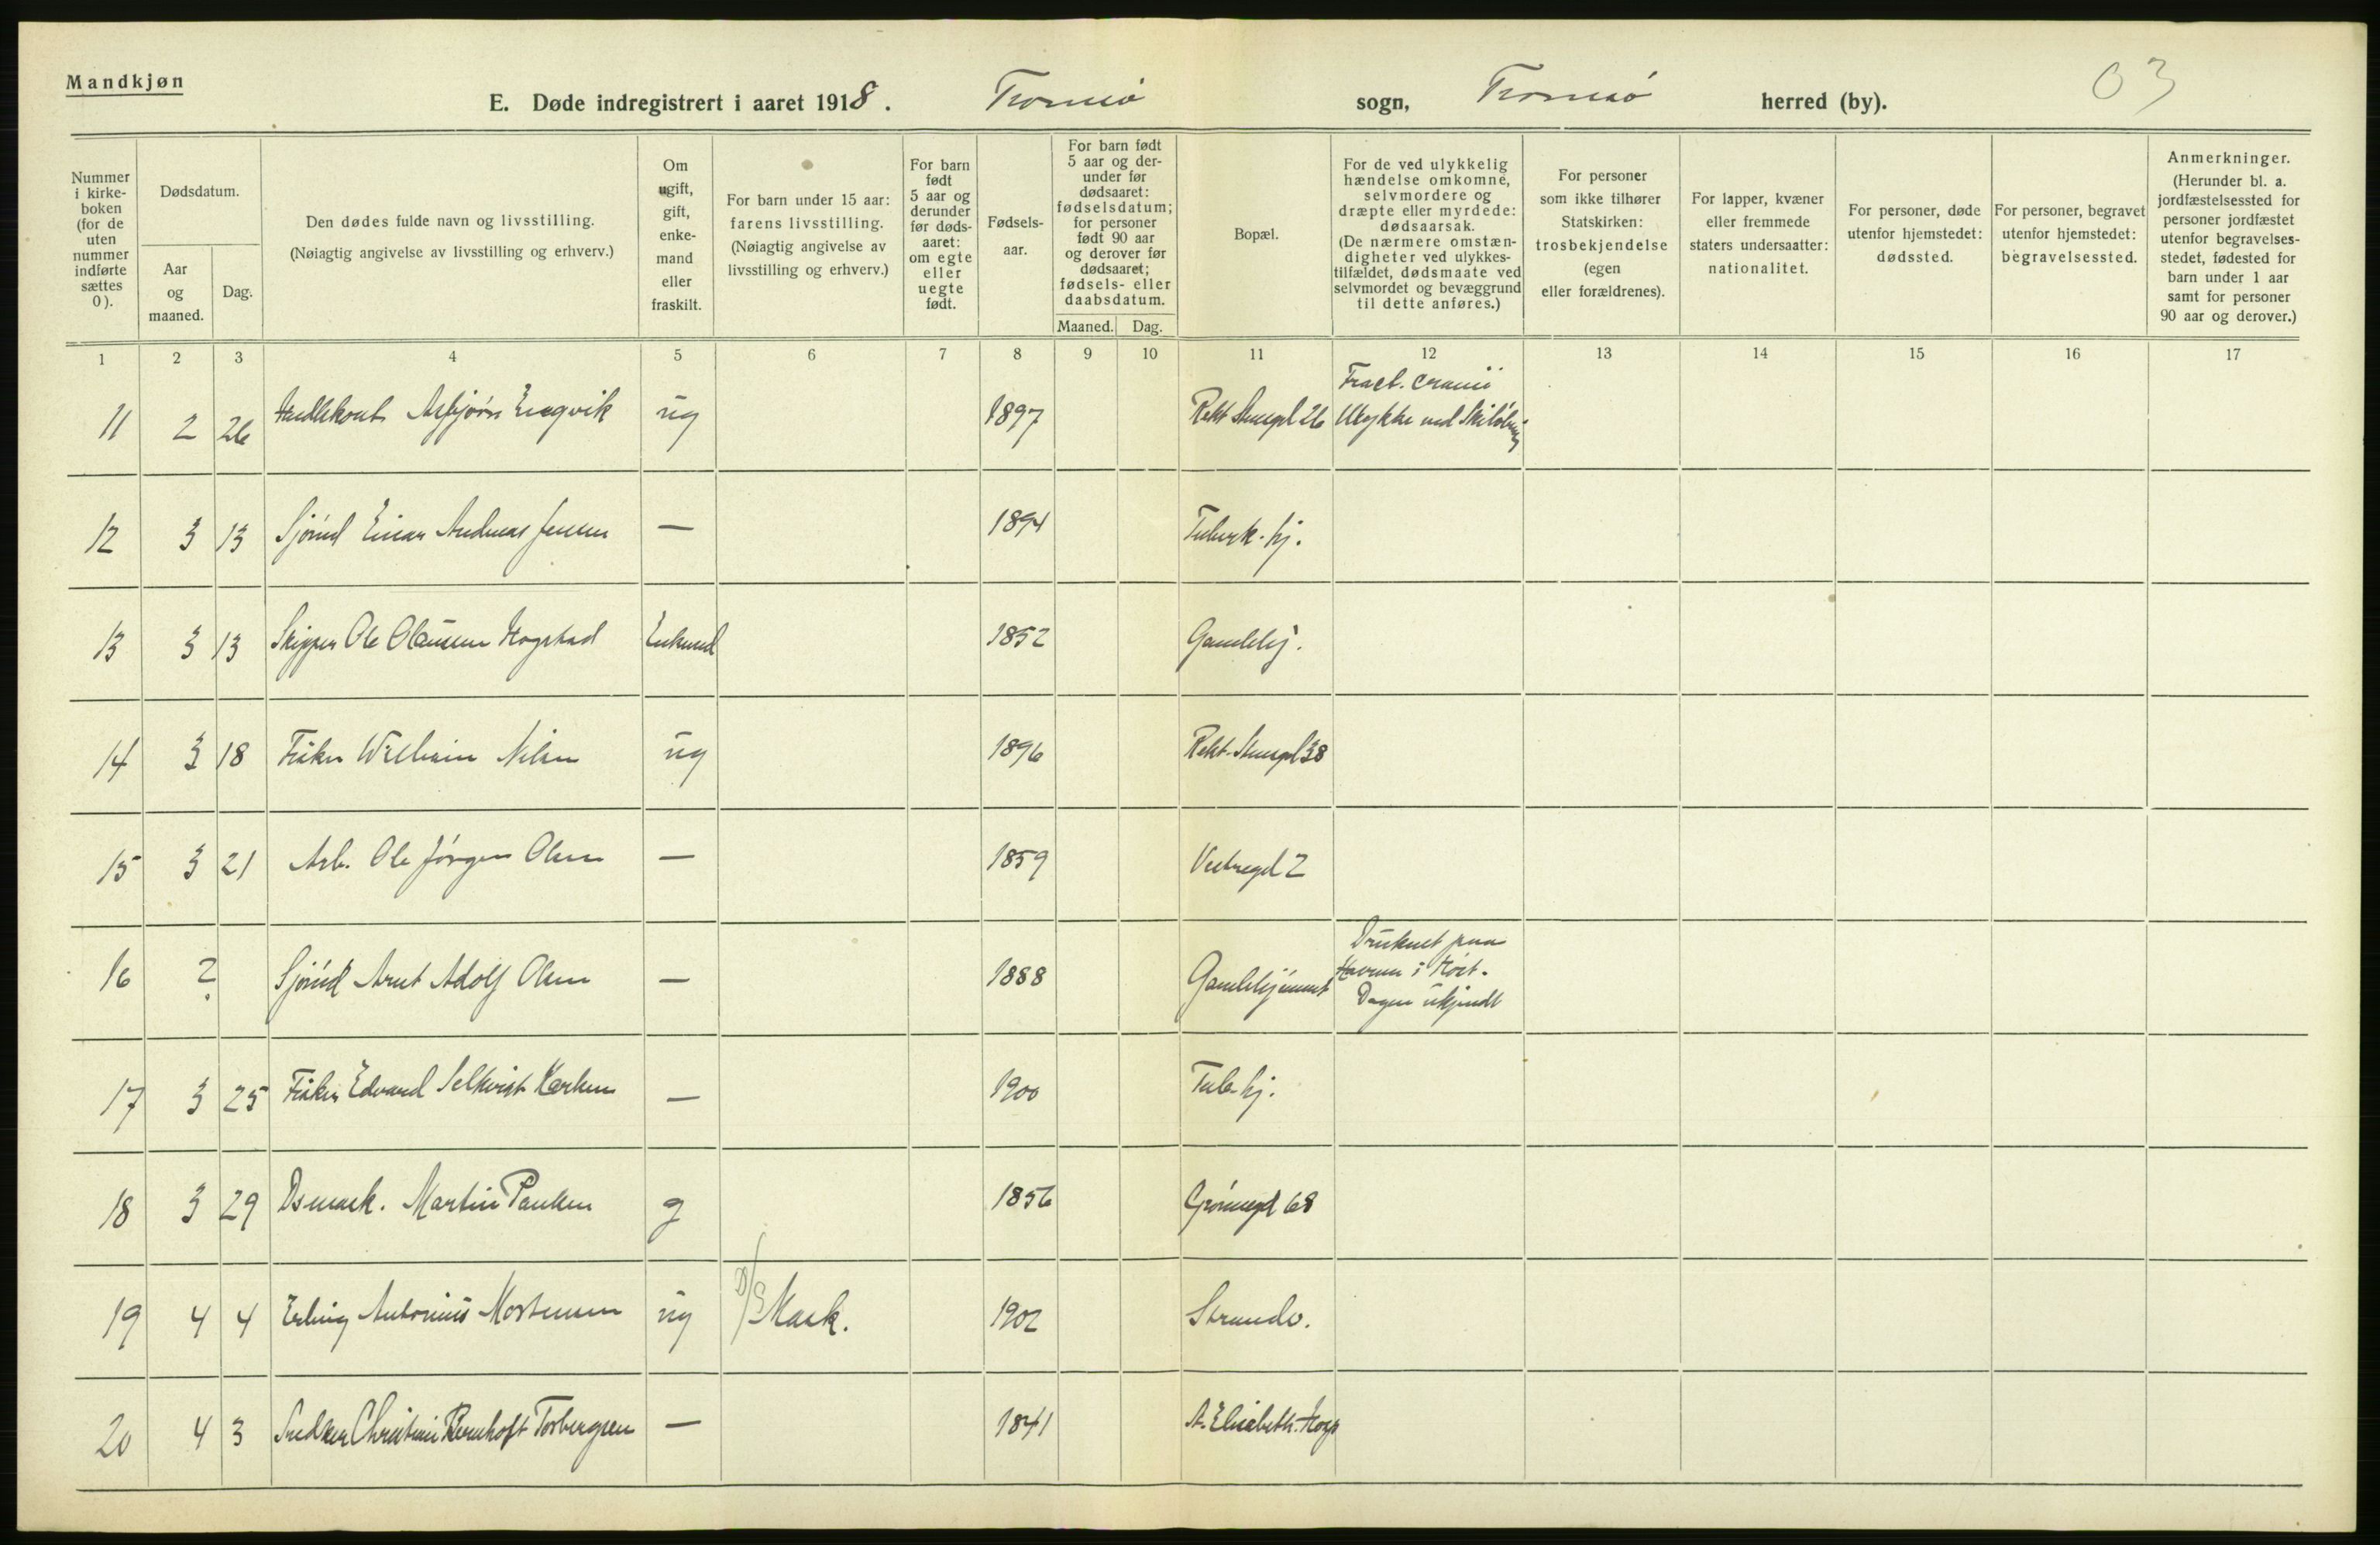 Mandkjøn
E. Døde indregistrert i aaret 1918. Tromsø sogn, Tromsø herred (by).
03
Nummer i kirke-boken (for de uten nummer indførte sættes 0).
Dødsdatum.
Aar og maaned.
Dag.
Den dødes fulde navn og livsstilling.
(Nøiagtig angivelse av livsstilling og erhverv.)
Om ugift, gift, enke-mand eller fraskilt.
For barn under 15 aar: farens livsstilling.
(Nøiagtig angivelse av livsstilling og erhverv.)
For barn født 5 aar og derunder før døds-aaret: om egte eller uegte født.
Fødsels-aar.
For barn født 5 aar og der-under før dødsaaret: fødselsdatum; for personer født 90 aar og derover før dødsaaret; fødsels- eller daabsdatum.
Maaned. Dag.
Bopæl.
For de ved ulykkelig hændelse omkomne, selvmordere og dræpte eller myrdede: dødsaarsak.
(De nærmere omstæn-digheter ved ulykkes-tilfældet, dødsmaate ved selvmordet og bevæggrund til dette anføres.)
For personer som ikke tilhører Statskirken: trosbekjendelse (egen eller forældrenes).
For lapper, kvæner eller fremmede staters undersaatter: nationalitet.
For personer, døde utenfor hjemstedet: dødssted.
For personer, begravet utenfor hjemstedet: begravelsessted.
Anmerkninger.
(Herunder bl. a. jordfæstelsessted for personer jordfæstet utenfor begravelses-stedet, fødested for barn under 1 aar samt for personer 90 aar og derover.)
1 2 3 4 5 6 7 8 9 10 11 12 13 14 15 16 17
Fract. cranii
11 2 26 Asbjørn Engvik ug 1897 Rekt Steengd 26 Ulykke ved Skiløbning
12 3 13 Sjømd Einar Andreas Jensen — 1894 Tuberk. hj.
13 3 13 Skipper Ole Olausen Hogstad Enkemd 1852 Gamlehj.
14 3 18 Fisker Wilhelm Nilsen ug 1896 Rekt. Steengd 38
15 3 21 Arb. Ole Jørgen Olsen — 1859 Vestregd 2
16 ? Sjømd Arnt Adolf Olsen — 1888 Gamlehjemmet Druknet paa
Havnen i Høst.
Dagen ukjendt
17 3 25 Fisker Edvard Selkvist Karlsen — 1900 Tub. hj.
18 3 29 Dsmask. Martin Paulsen g 1856 Grønnegd 68
19 4 4 Erling Antonius Mortensen ug D/S Mask. 1902 Strandv.
20 4 3 Snedker Christian Bernhoft Torbergsen — 1841 St. Elisabeth. Hosp